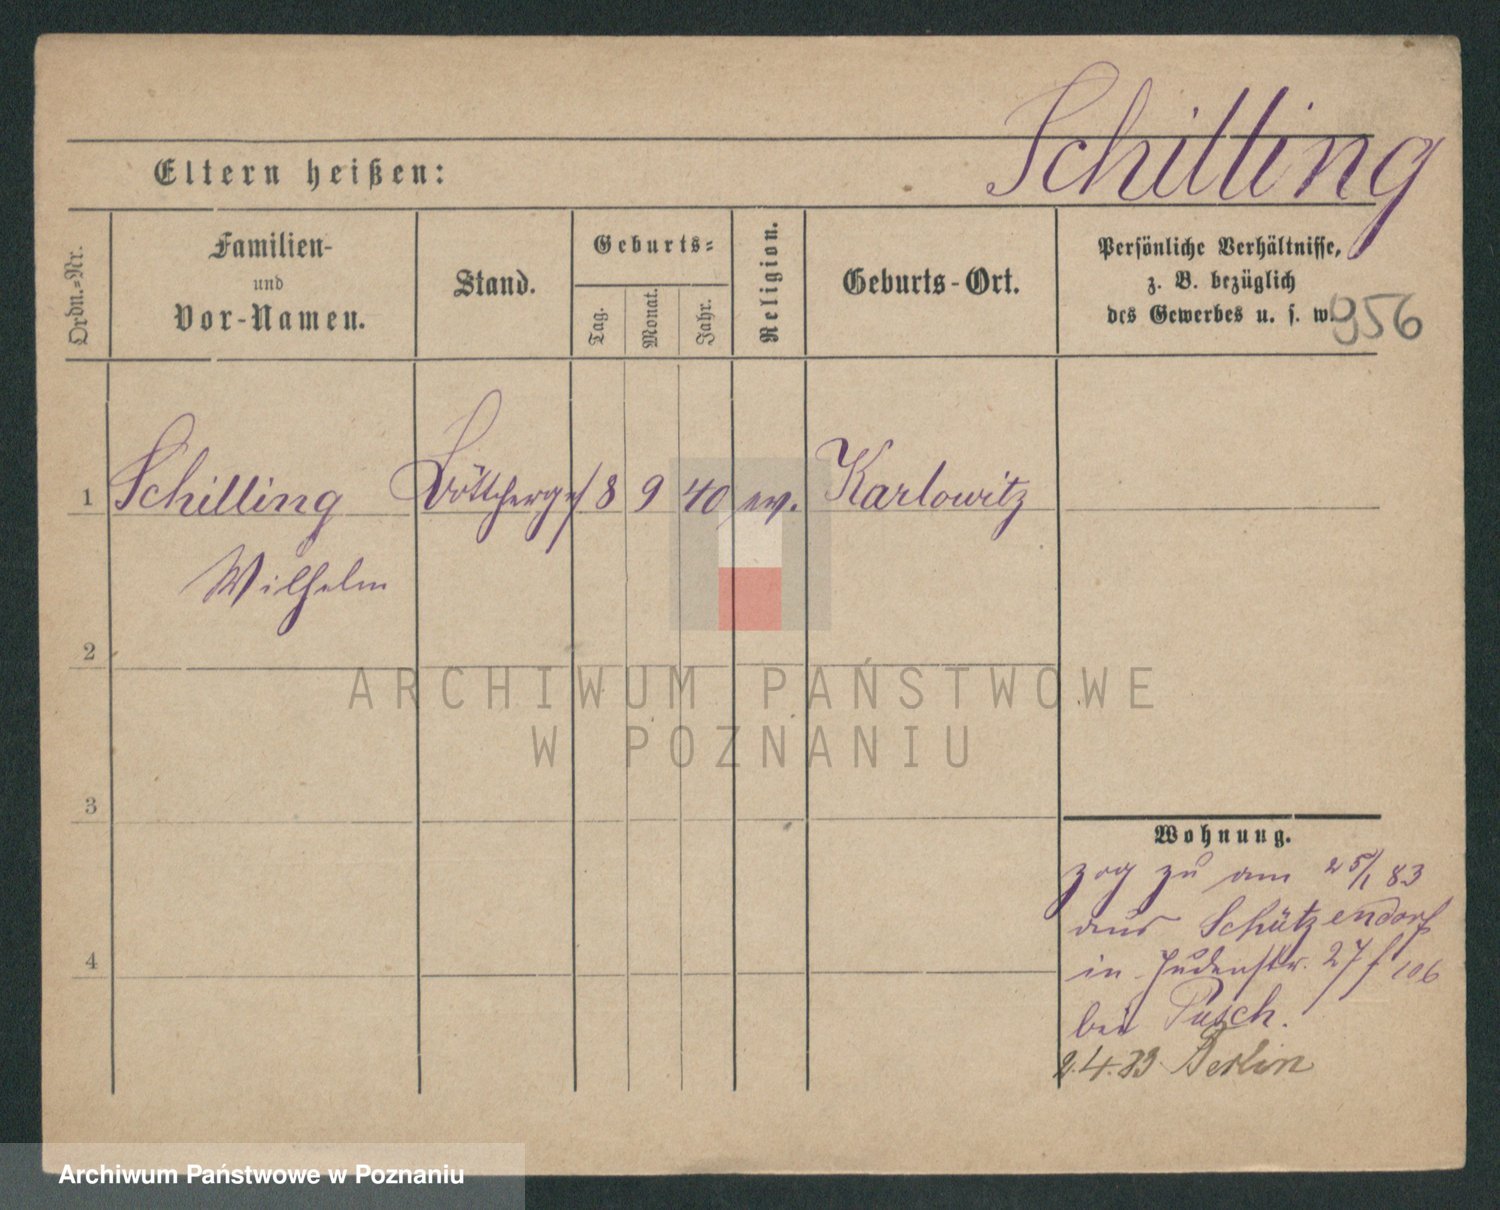 Schilling
Eltern heißen:
Ordn.-Nr.
Familien-
und
Vor-Namen.
Stand.
Geburts-
Tag.
Monat.
Jahr.
Religion.
Geburts-Ort.
Persönliche Verhältnisse,
z. B. bezüglich
des Gewerbes u. s. w.
956
1 Schilling Böttcherges 8 9 40 ev. Karlowitz
Wilhelm
2
3
4
ARCHIWUM PAŃSTWOWE
W POZNANIU
Wohnung.
zog zu am 25/1 83
aus Schützendorf
in Judenstr. 27 f 106
bei Pusch.
2.4.83 Berlin
Archiwum Państwowe w Poznaniu